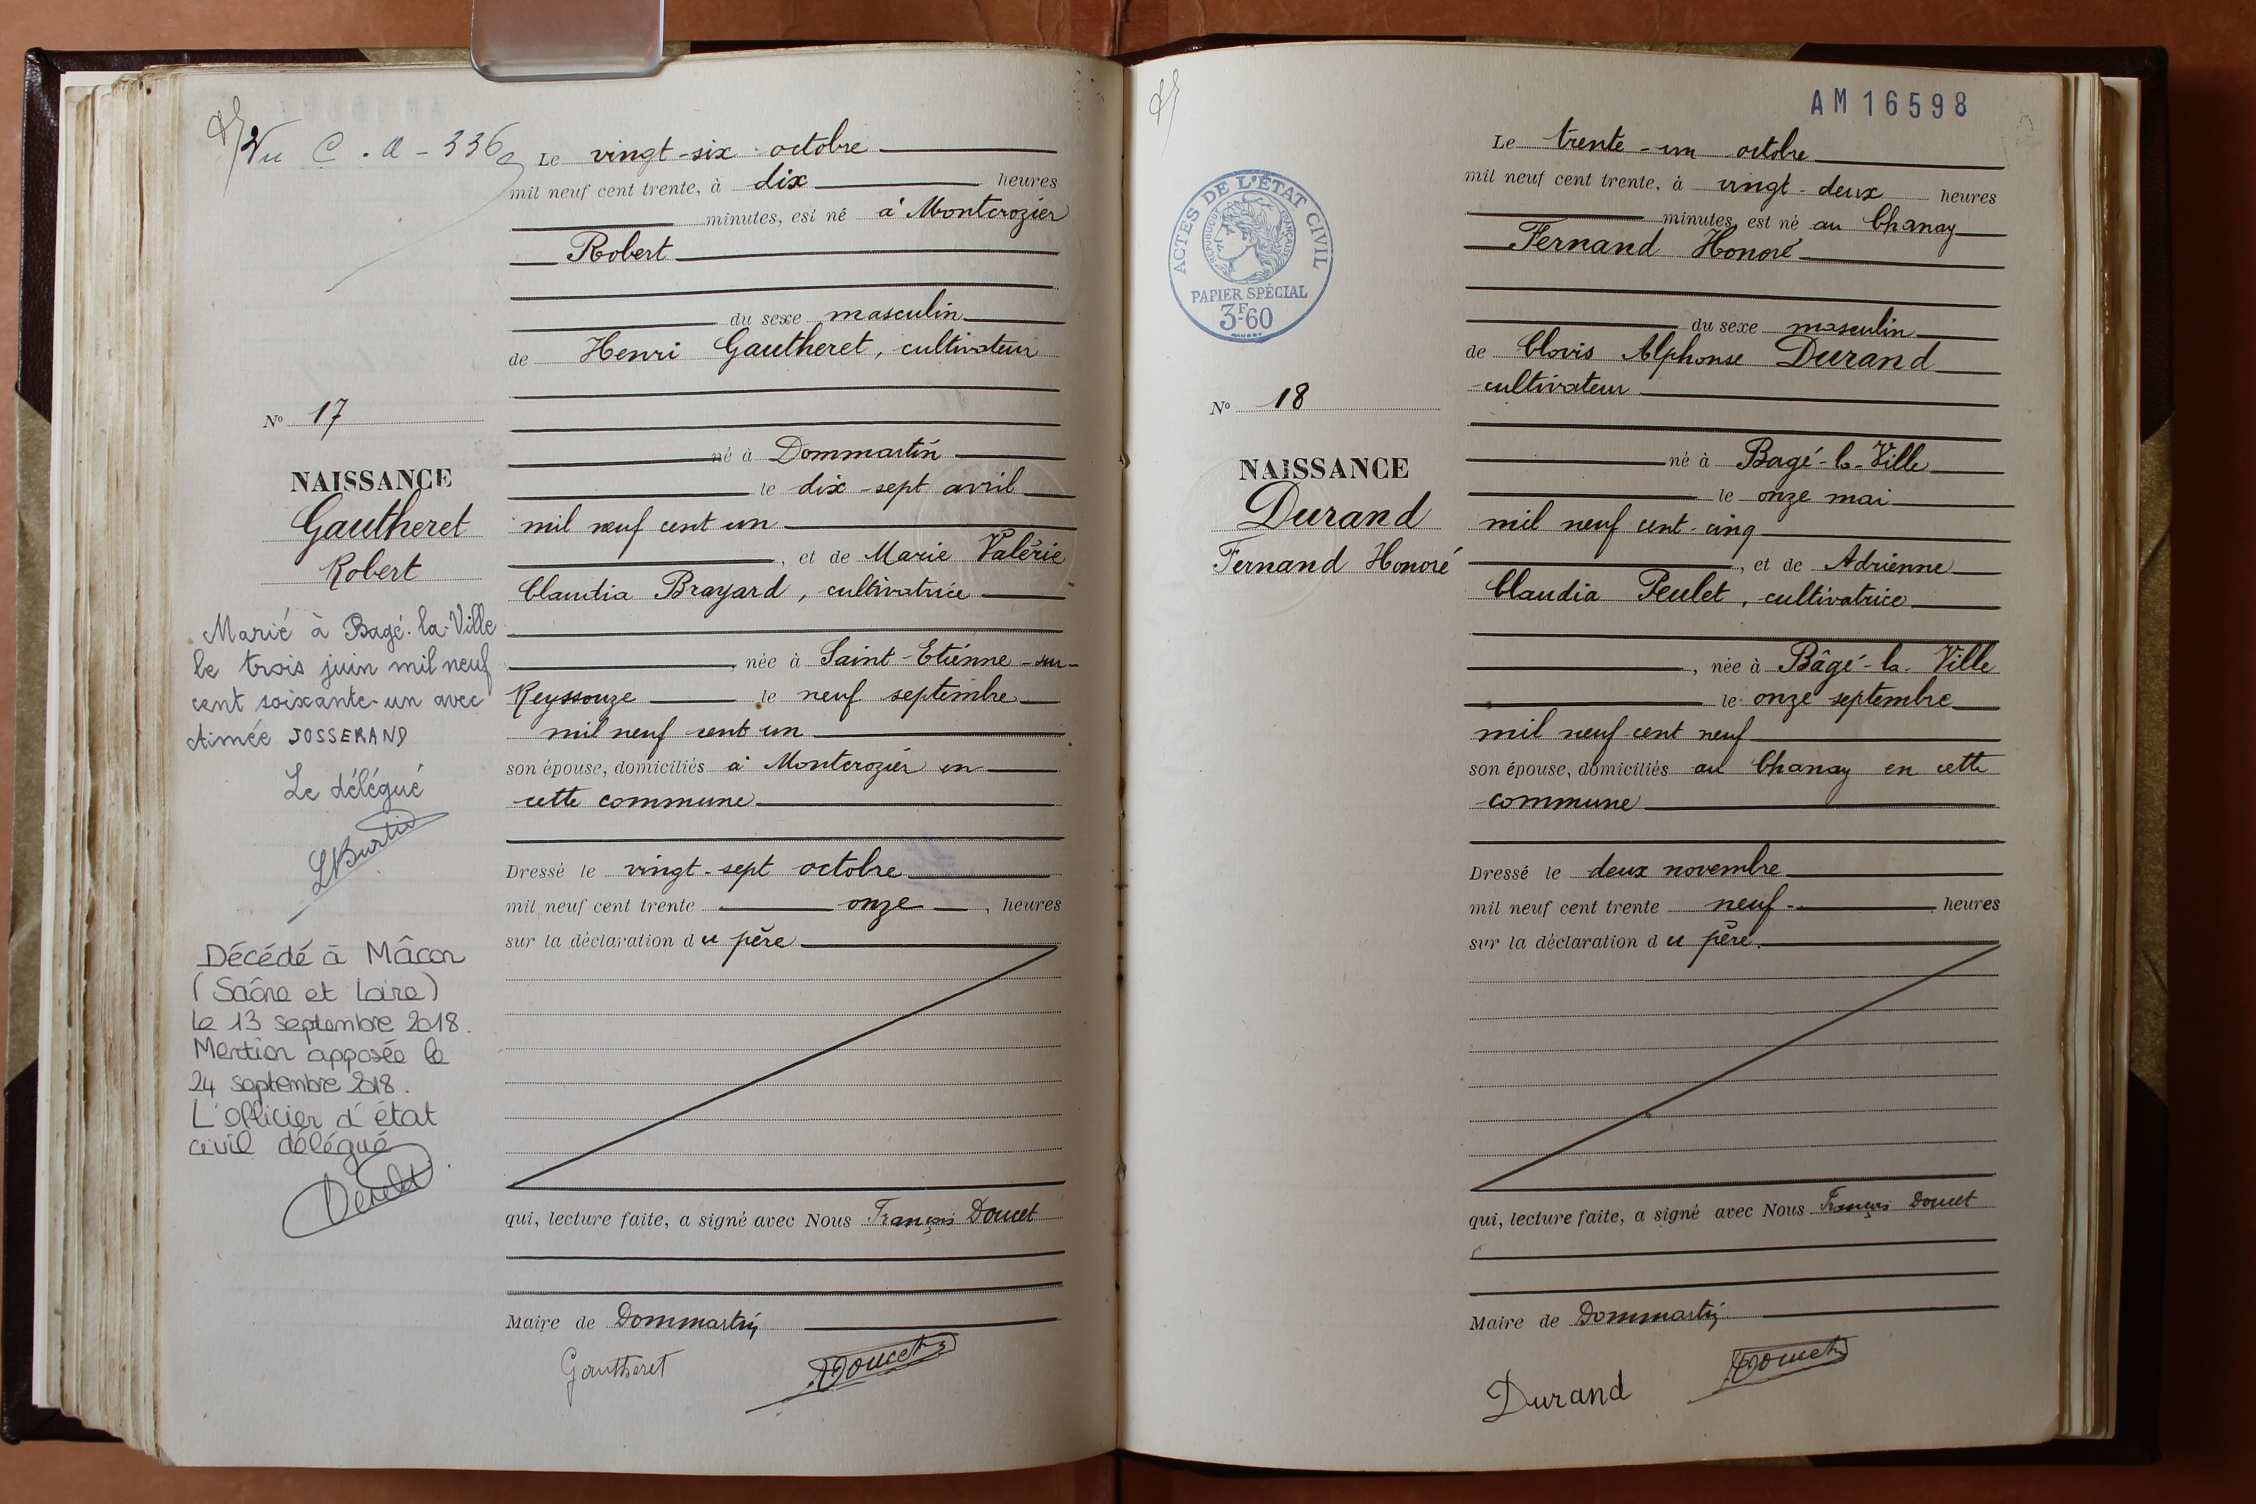 Vu C.A-336
Le vingt-six octobre
mil neuf cent trente, à dix heures
minutes, est né à Montcrozier
Robert
du sexe masculin
de Henri Gautheret, cultivateur
né à Dommartin
le dix-sept avril
mil neuf cent un
, et de Marie Valérie
Claudia Brayard, cultivatrice
, née à Saint-Etienne-sur-
Reyssouze le neuf septembre
mil neuf cent un
son épouse, domiciliés à Montcrozier en
cette commune
Dressé le vingt-sept octobre
mil neuf cent trente onze, heures
sur la déclaration du père
qui, lecture faite, a signé avec Nous François Doucet
Maire de Dommartin
Gautheret Doucet
No 17
NAISSANCE
Gautheret
Robert
Marié à Bagé-la-Ville
le trois juin mil neuf
cent soixante-un avec
Aimée JOSSERAND
Le délégué
Décédé à Mâcon
(Saône et Loire)
le 13 septembre 2018.
Mention apposée le
24 septembre 2018.
L'Officier d'état
civil délégué
AM 16598
ACTES DE L'ÉTAT CIVIL
RÉPUBLIQUE FRANÇAISE
PAPIER SPÉCIAL
3F60
No 18
NAISSANCE
Durand
Fernand Honoré
Le trente-un octobre
mil neuf cent trente, à vingt-deux heures
minutes, est né au Chanay
Fernand Honoré
du sexe masculin
de Clovis Alphonse Durand
cultivateur
né à Bagé-la-Ville
le onze mai
mil neuf cent-cinq
, et de Adrienne
Claudia Peulet, cultivatrice
, née à Bâgé-la-Ville
le onze septembre
mil neuf cent neuf
son épouse, domiciliés au Chanay en cette
commune
Dressé le deux novembre
mil neuf cent trente neuf- heures
sur la déclaration du père.
qui, lecture faite, a signé avec Nous François Doucet
Maire de Dommartin
Durand Doucet